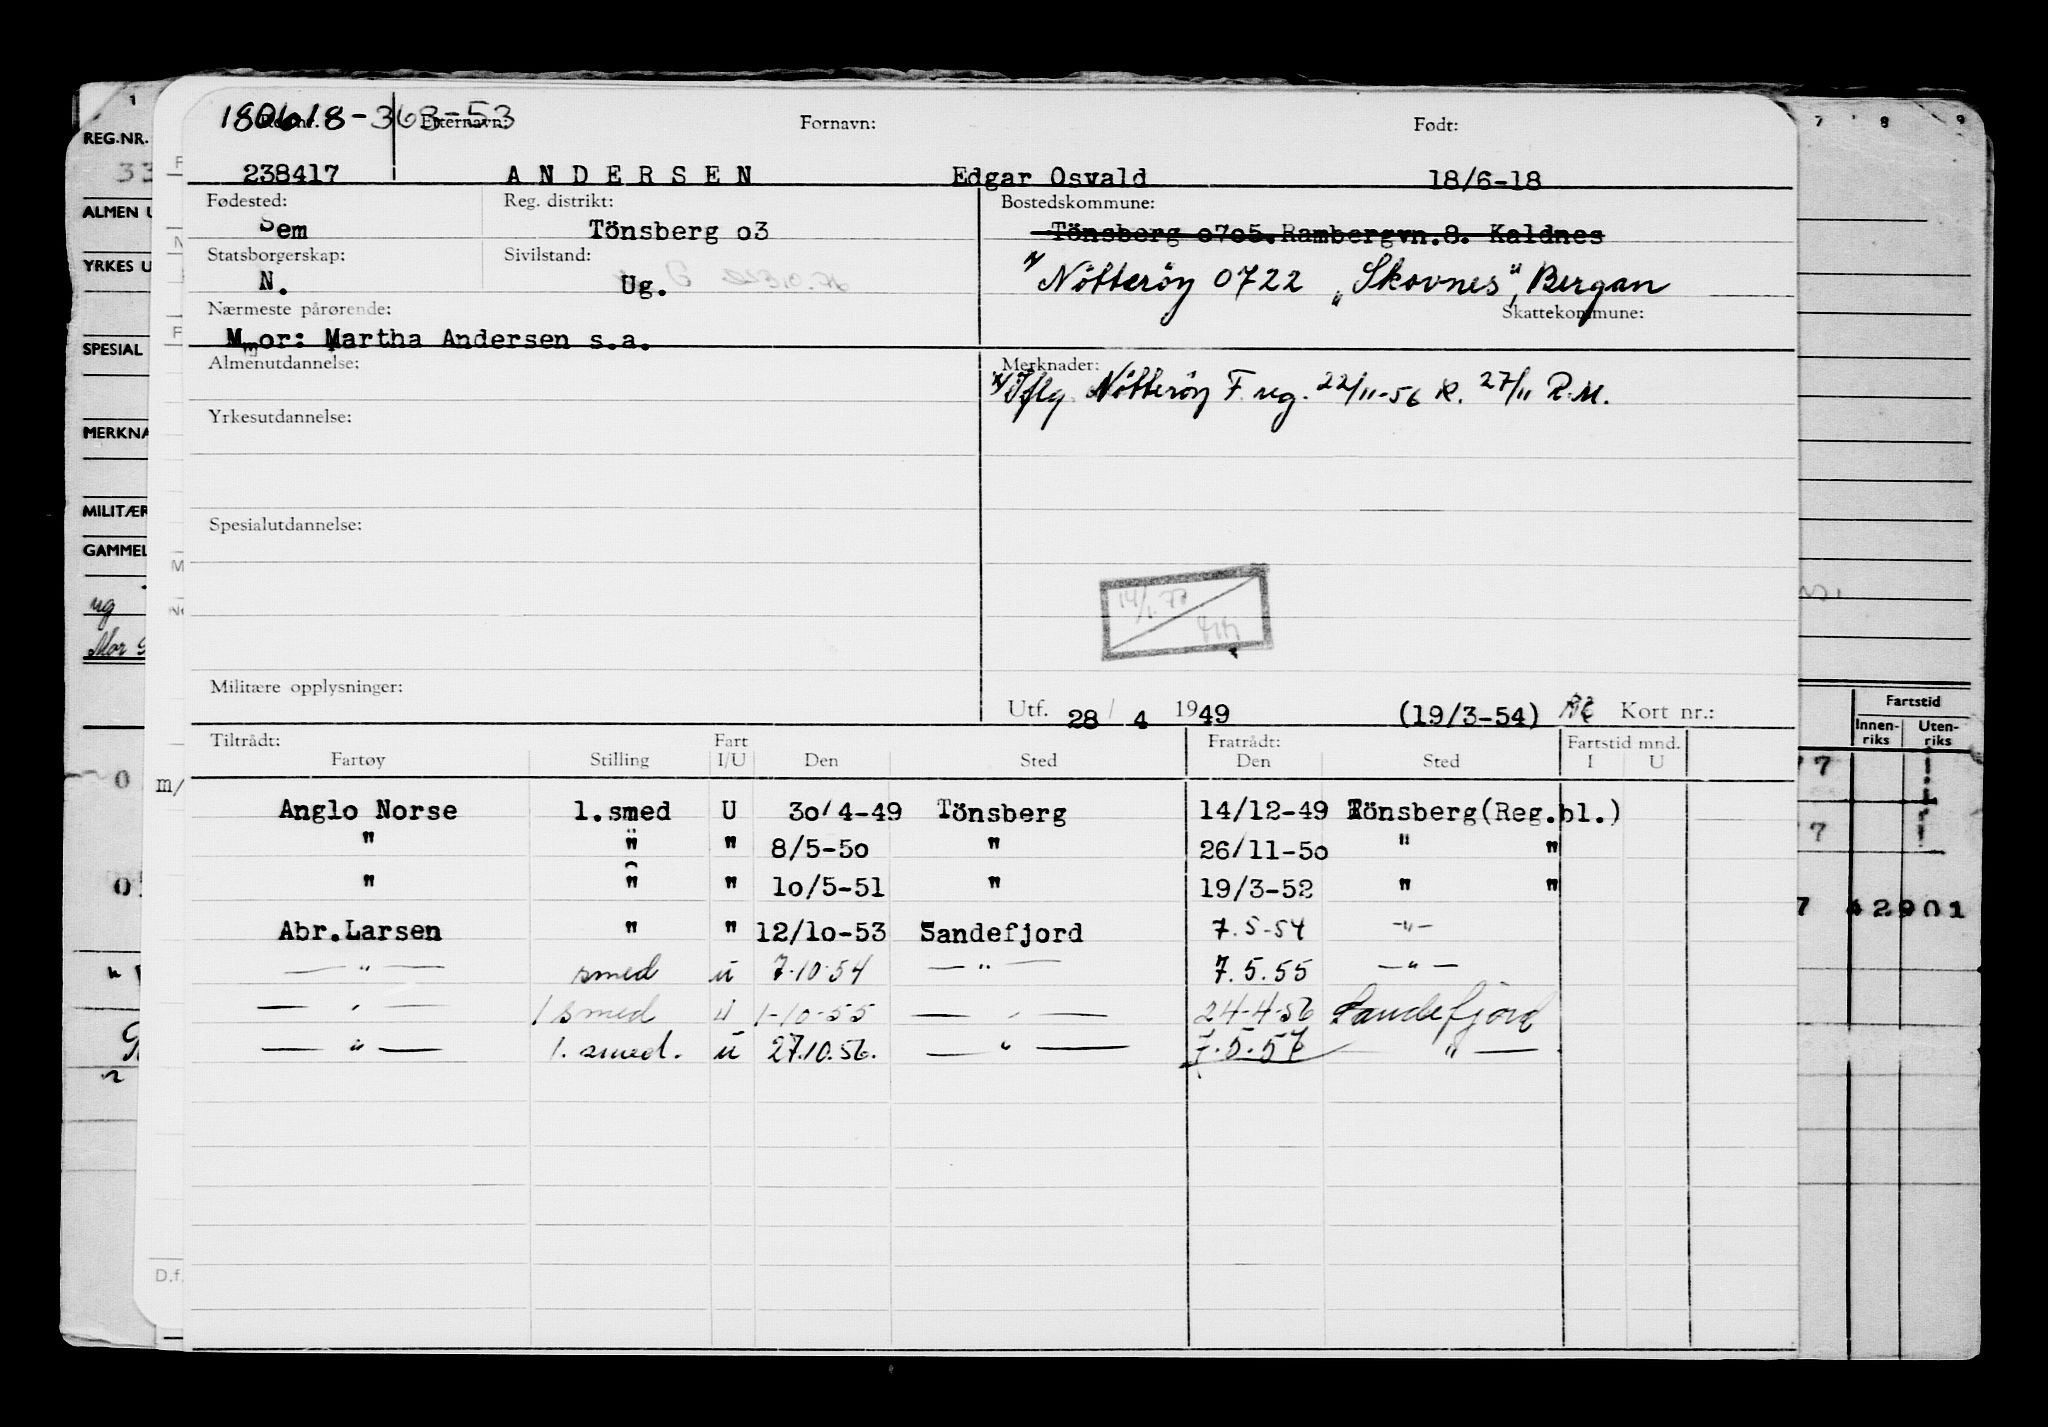 180618-363-53
Reg.nr. Etternavn: Fornavn: Født:
238417 ANDERSEN Edgar Osvald 18/6-18
Fødested: Reg. distrikt: Bostedskommune:
Sem Tönsberg o3 Tönsberg o7o5. Rambergvn.8. Kaldnes
Statsborgerskap: Sivilstand:
N. Ug. Nötteröy 0722 "Skovnes", Bergan
Nærmeste pårørende: Skattekommune:
Mor: Martha Andersen s.a.
Almenutdannelse: Merknader:
Iflg. Nötteröy F.reg. 22/11-56 R. 27/11 R.M.
Yrkesutdannelse:
Spesialutdannelse:
14/1.77
Militære opplysninger:
Utf. 28/4 1949 (19/3-54) Kort nr.:
Tiltrådt: Fart Fratrådt: Fartstid mnd.
Fartøy Stilling I/U Den Sted Den Sted I U
Anglo Norse 1.smed U 3o/4-49 Tönsberg 14/12-49 Tönsberg(Reg.bl.)
" " " 8/5-5o " 26/11-5o " "
" " " 1o/5-51 " 19/3-52 " "
Abr.Larsen " " 12/1o-53 Sandefjord 7.5-54 -"-
-"- smed u 7.10.54 -"- 7.5.55 -"-
-"- 1 smed u 1-10-55 -"- 24-4-56 Sandefjord
-"- 1. smed. u 27.10.56. -"- 7.5.57 -"-
REG.NR.
33
ALMEN U
YRKES U
SPESIAL
MERKNA
MILITÆR
GAMMEL
ug
Mor
m/
D.f.
1
7 8 9
Fartstid
Innen-riks Uten-riks
7
7
7 42901